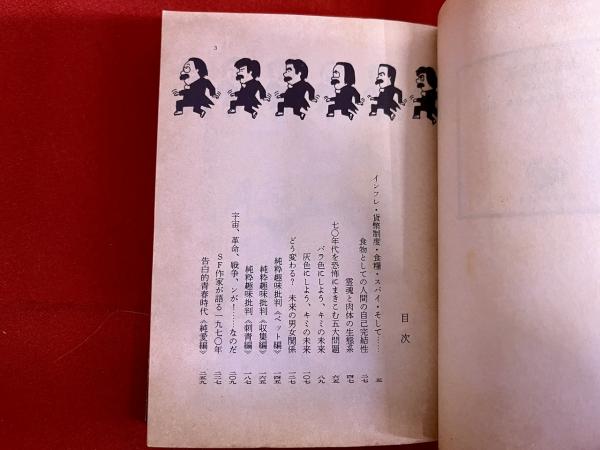 3
目次
インフレ・貨幣制度・食糧・スパイ・そして…… 五
食物としての人間の自己完結性 二七
霊魂と肉体の生態系 四七
七〇年代を恐怖にまきこむ五大問題 六五
バラ色にしよう、キミの未来 八九
灰色にしよう、キミの未来 一〇七
どう変わる？ 未来の男女関係 一二七
純粋趣味批判《ペット編》 一四五
純粋趣味批判《収集編》 一六五
純粋趣味批判《刺青編》 一八七
宇宙、革命、戦争、ンが！……なのだ 二〇九
SF作家が語る一九七〇年 二三七
告白的青春時代《純愛編》 二五九